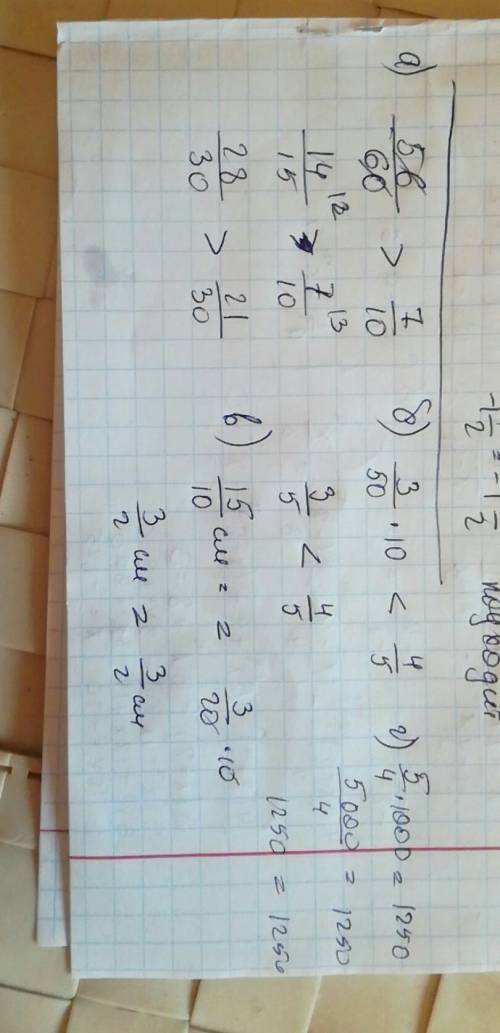 -1 1/2 = -1 1/2 подходит
а) 56/60 > 7/10
14/15 12 > 7/10 13
28/30 > 21/30
б) 3/50 · 10 < 4/5
3/5 < 4/5
в) 15/10 см = 3/20 · 10
3/2 см = 3/2 см
г) 5/4 · 1000 = 1250
5000/4 = 1250
1250 = 1250